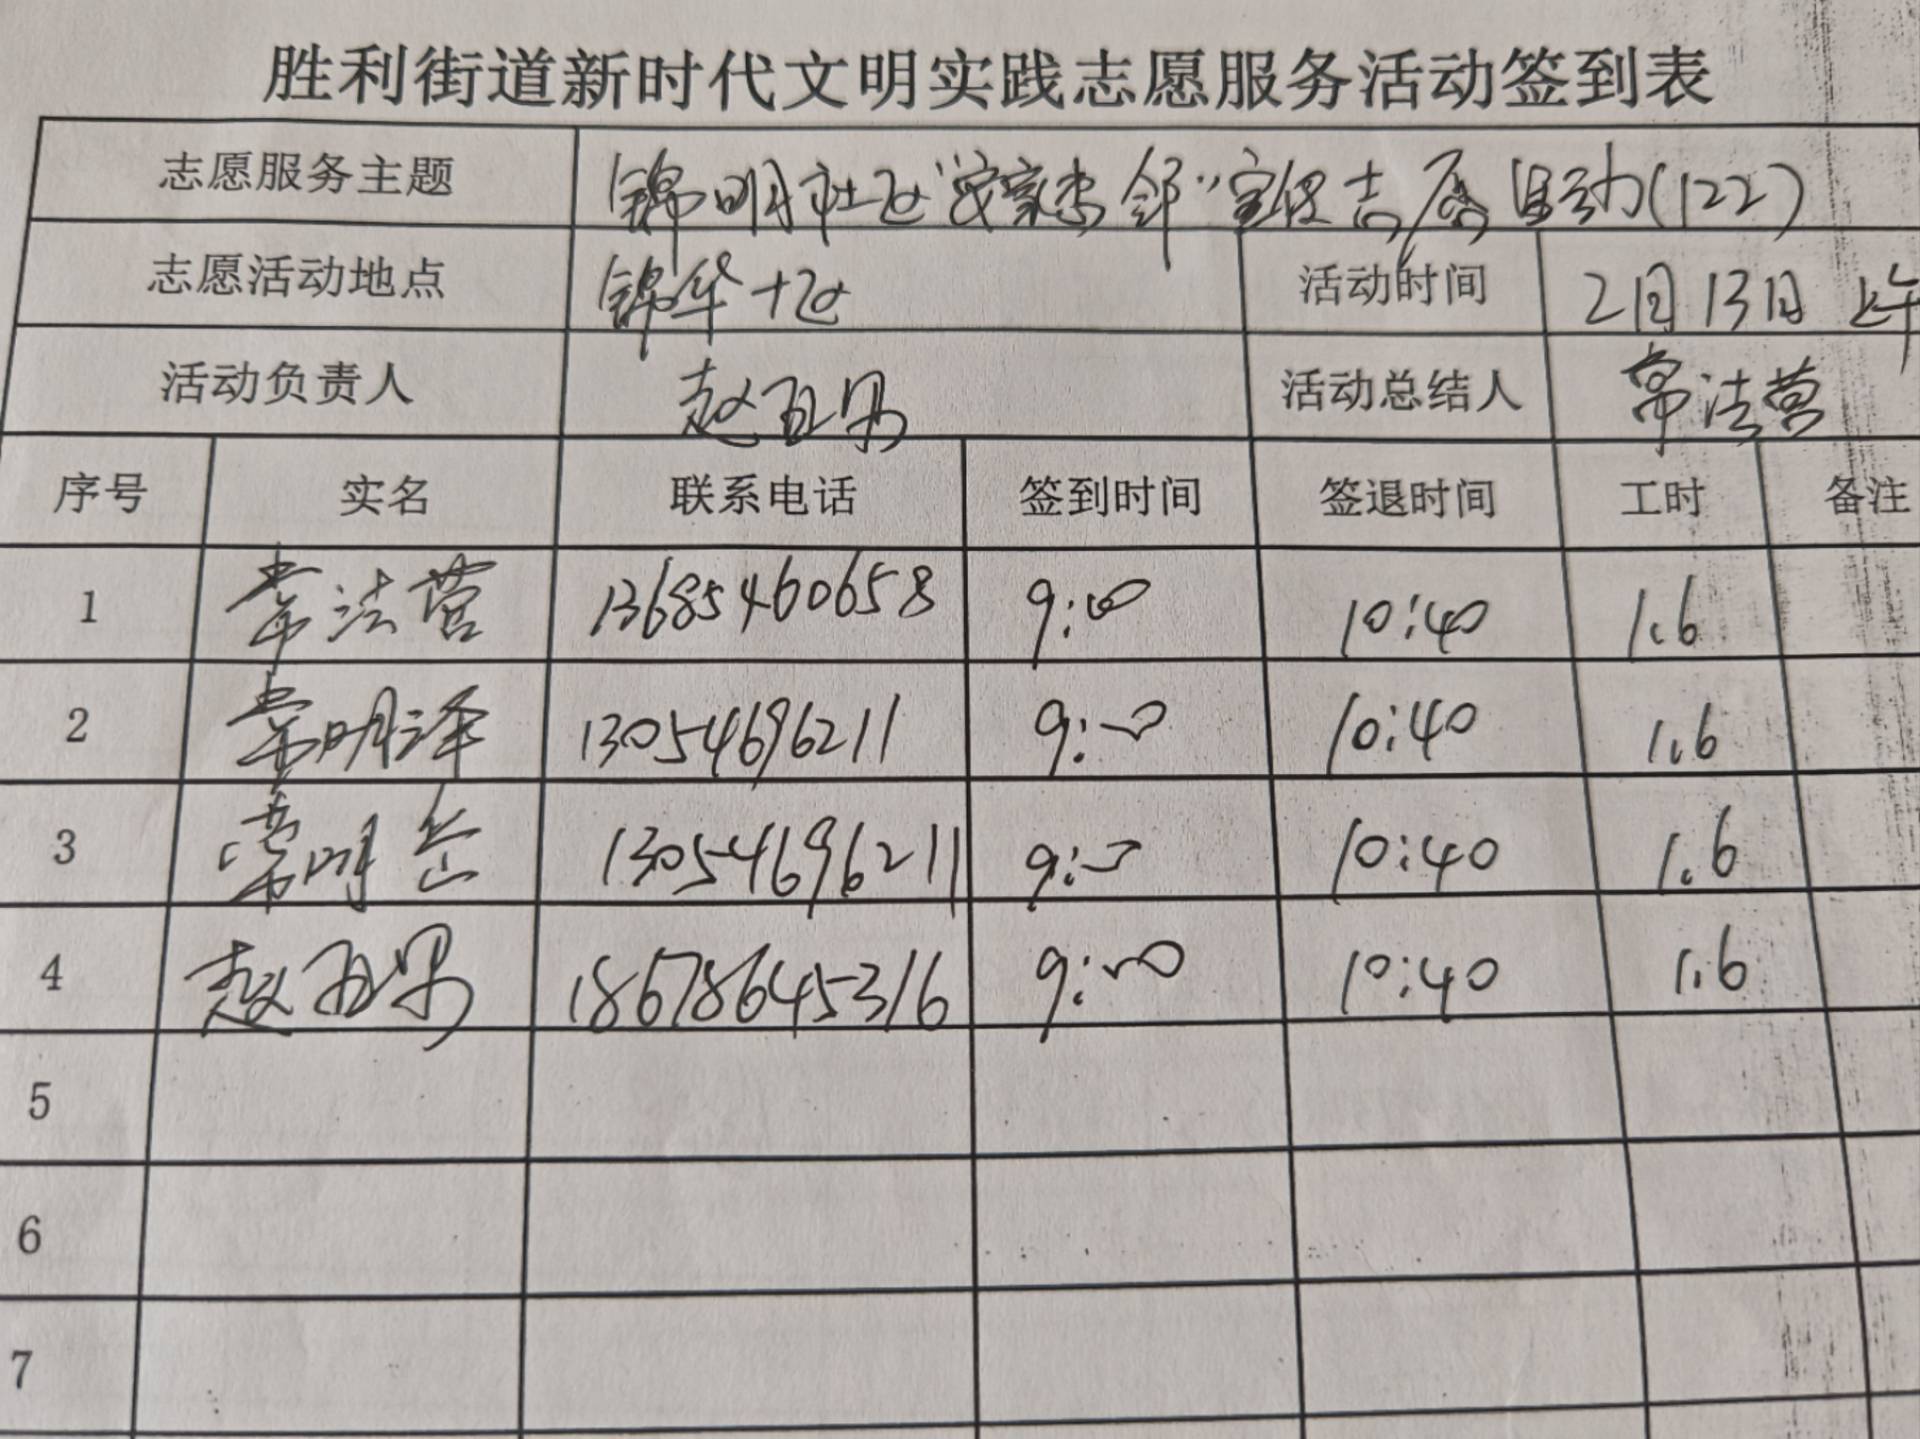 胜利街道新时代文明实践志愿服务活动签到表
志愿服务主题 锦明社区"安家李邻"宣保志愿活动(122)
志愿活动地点 锦华十区 活动时间 2月13日 上午
活动负责人 赵 活动总结人 常法营
序号 实名 联系电话 签到时间 签退时间 工时 备注
1 常法营 13685460658 9:00 10:40 1.6
2 常明泽 13054696211 9:00 10:40 1.6
3 常明岳 13054696211 9:00 10:40 1.6
4 赵 18678645316 9:00 10:40 1.6
5
6
7